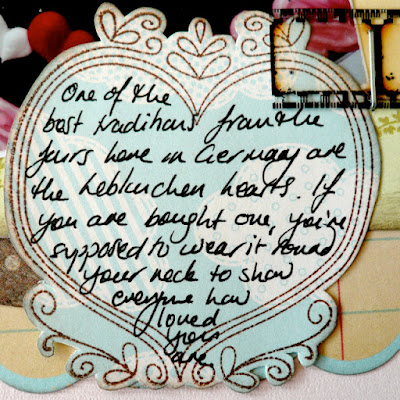 One of the
best traditions from the
fairs here in Germany are
the lebkuchen hearts. If
you are bought one, you're
supposed to wear it round
your neck to show
everyone how
loved
you
are